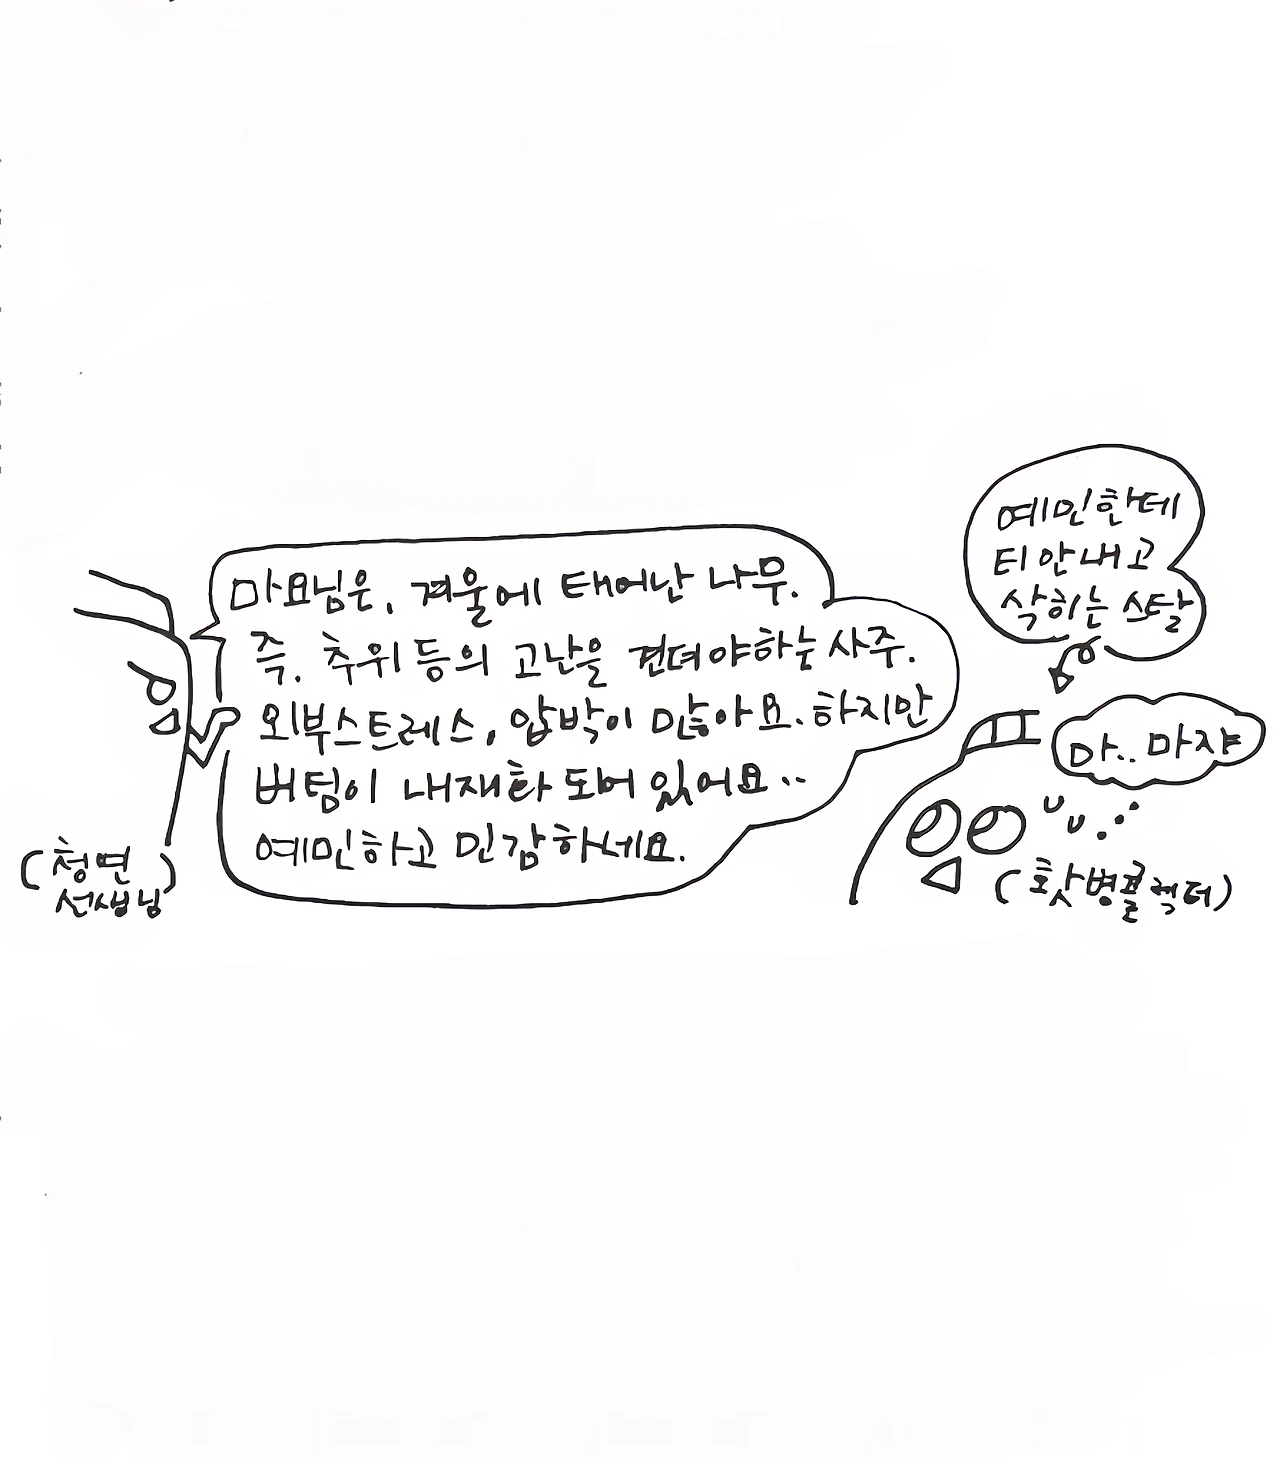 마요님은, 겨울에 태어난 나무.
즉. 추위 등의 고난을 견뎌야하는 사주.
외부스트레스, 압박이 많아요. 하지만
버텀이 내재화 되어 있어요..
예민하고 민감하네요.
(청면
선생님)
예민한데
티 안내고
삭히는 스탈
마.. 마쟈
(홧병콜렉터)